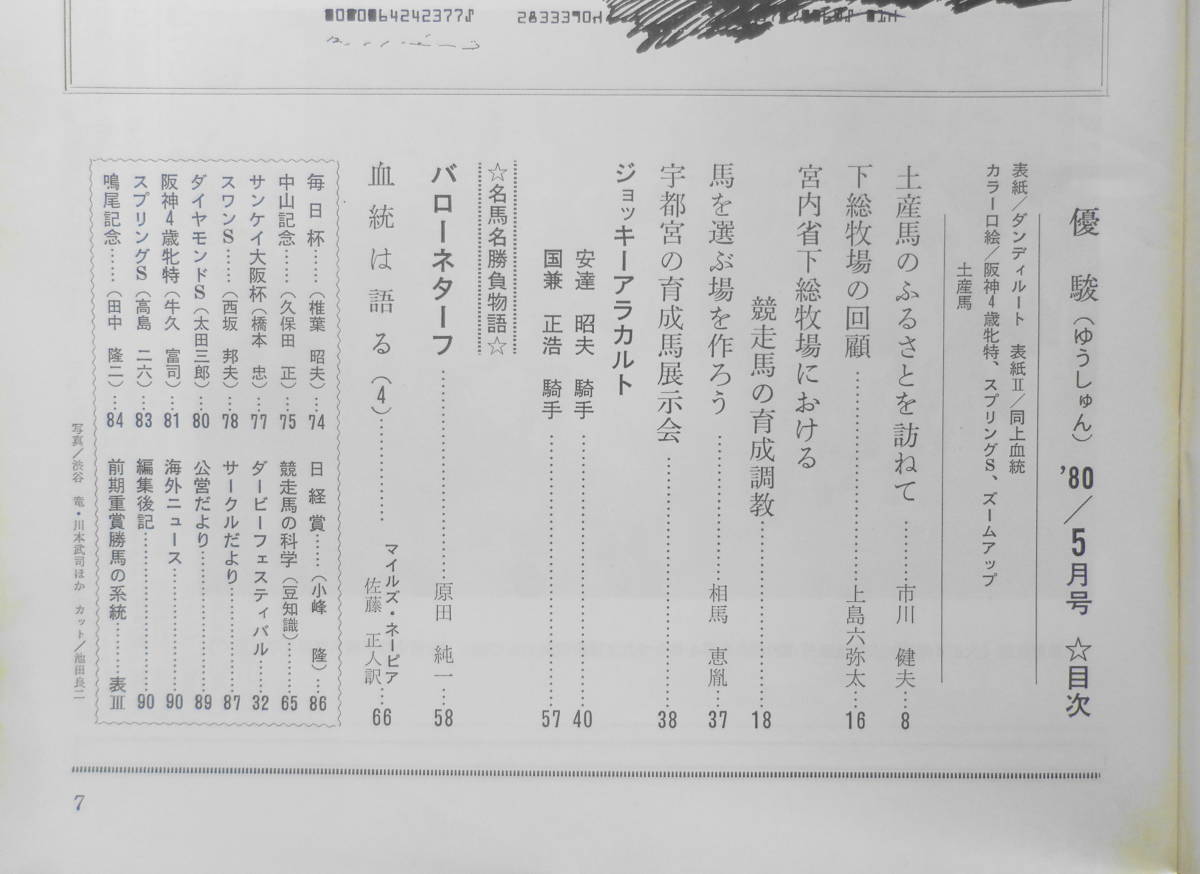 優駿（ゆうしゅん）'80／5月号 ☆目次
表紙／ダンディルート 表紙Ⅱ／同上血統
カラー口絵／阪神4歳牝特、スプリングS、ズームアップ
土産馬
土産馬のふるさとを訪ねて……市川 健夫…8
下総牧場の回顧……上島六弥太…16
宮内省下総牧場における
競走馬の育成調教……18
馬を選ぶ場を作ろう……相馬 恵胤…37
宇都宮の育成馬展示会……38
ジョッキーアラカルト
安達 昭夫 騎手……40
国兼 正浩 騎手……57
☆名馬名勝負物語☆
バローネターフ……原田 純一…58
血統は語る（4）……マイルズ・ネーピア
佐藤 正人訳…66
毎日杯……（椎葉 昭夫）…74
中山記念……（久保田 正）…75
サンケイ大阪杯（橋本 忠）…77
スワンS……（西坂 邦夫）…78
ダイヤモンドS（太田三郎）…80
阪神4歳牝特（牛久 富司）…81
スプリングS（高島 二六）…83
鳴尾記念……（田中 隆二）…84
日経賞……（小峰 隆）…86
競走馬の科学（豆知識）……65
ダービーフェスティバル……32
サークルだより……87
公営だより……89
海外ニュース……90
編集後記……90
前期重賞勝馬の系統……表Ⅲ
写真／渋谷 竜・川本武司ほか カット／池田良二
7